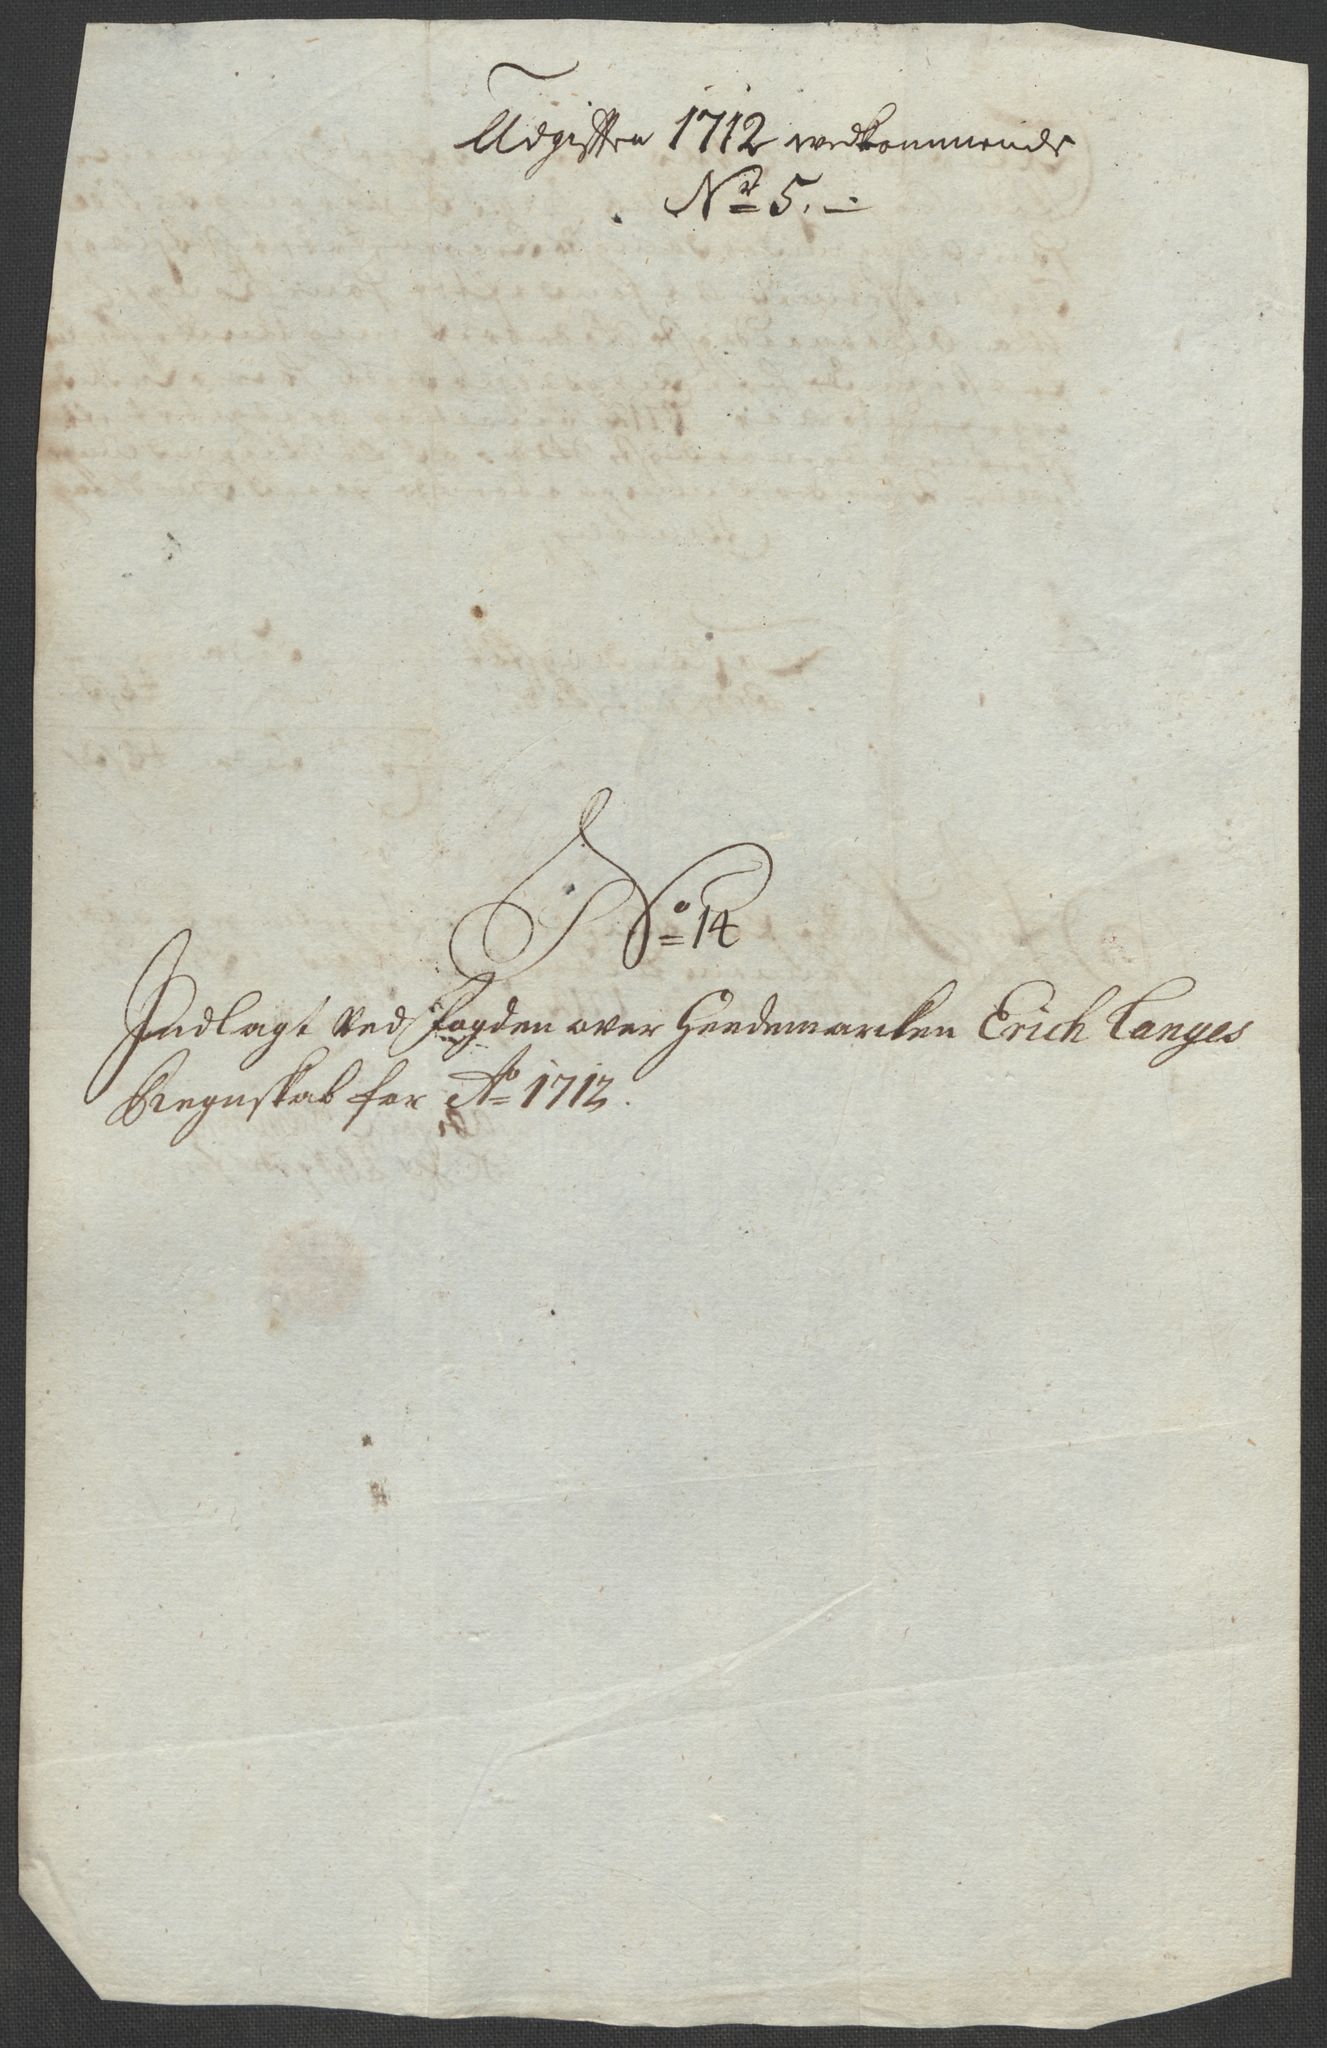 Udgifften 1712 vedkommende
No 5.
No 14
Indlagt ved fogden over Heedemarcken Erich Langes
Regnskab for Ao 1712.